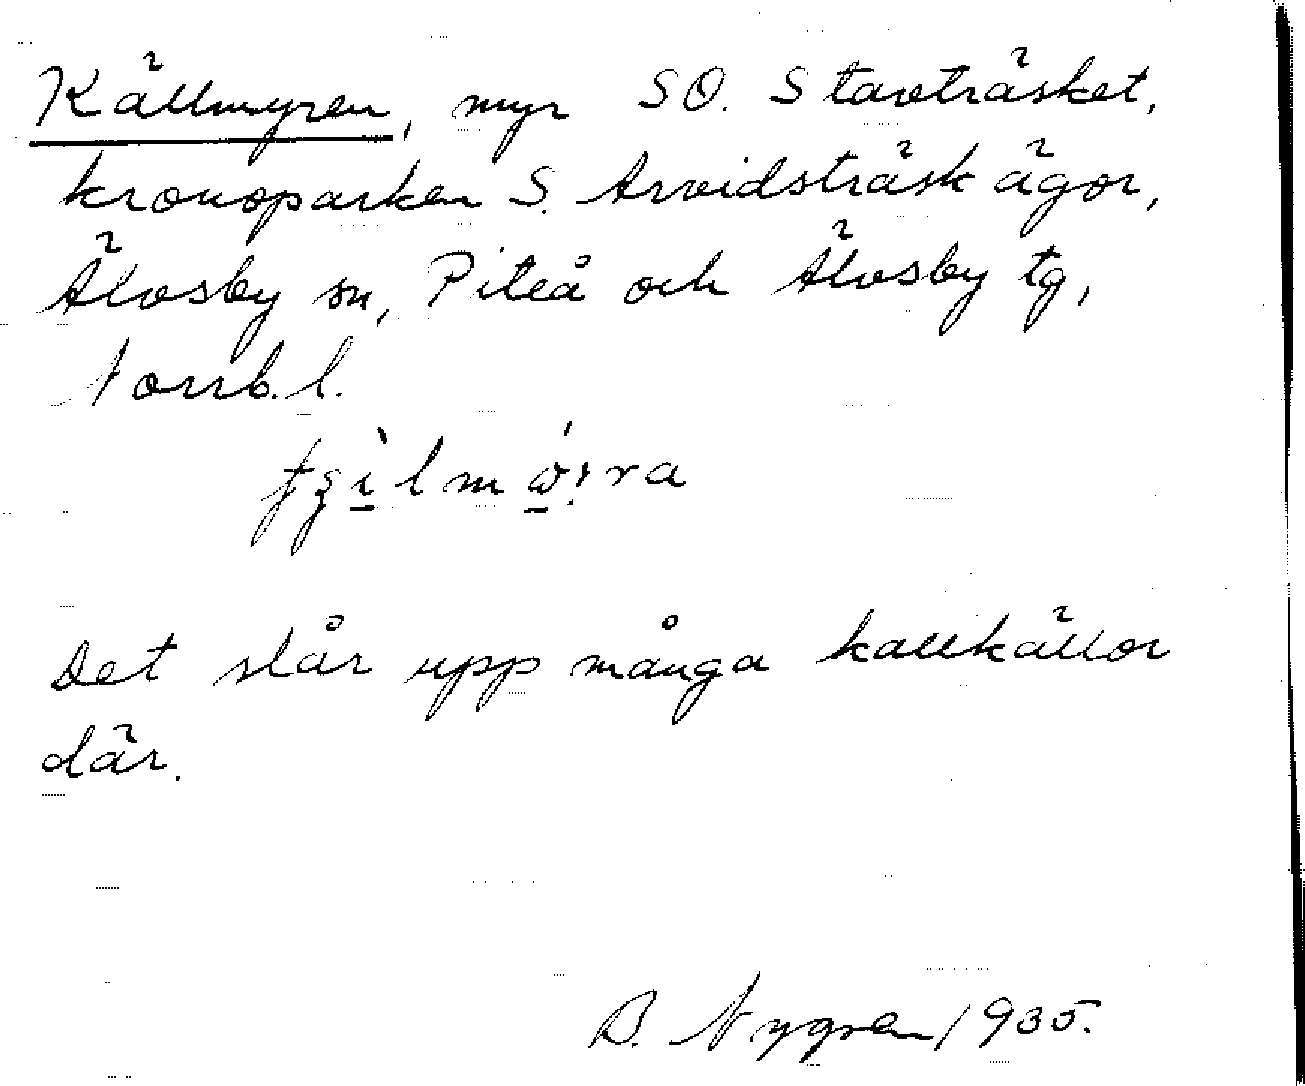 Källmyren, myr SO. Stavträsket,
kronoparken S. Arvidsträsk ägor,
Älvsby sn, Piteå och Älvsby tg,
Norrb. l.
Det slår upp många kallkällor
där.
B. Nygren 1935.